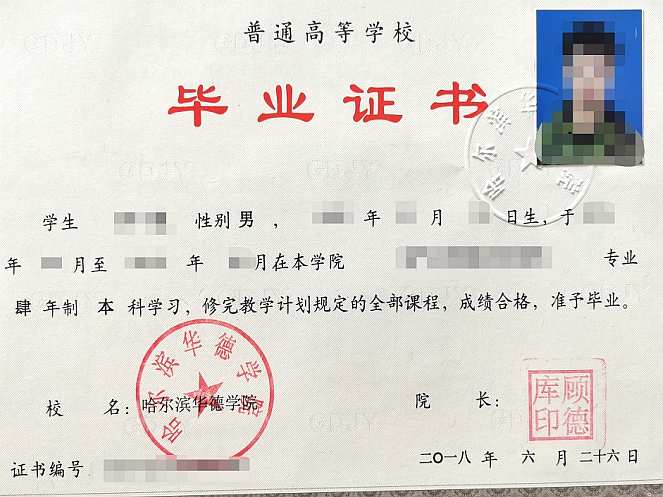 普通高等学校
毕业证书
哈尔滨华德学院
学生 性别 男 ， 年 月 日生，于
年 月至 年 月在本学院 专业
肆 年制 本 科学习，修完教学计划规定的全部课程，成绩合格，准予毕业。
哈尔滨华德学院
校 名：哈尔滨华德学院
院 长：
顾德库印
证书编号
二〇一八 年 六 月 二十六 日